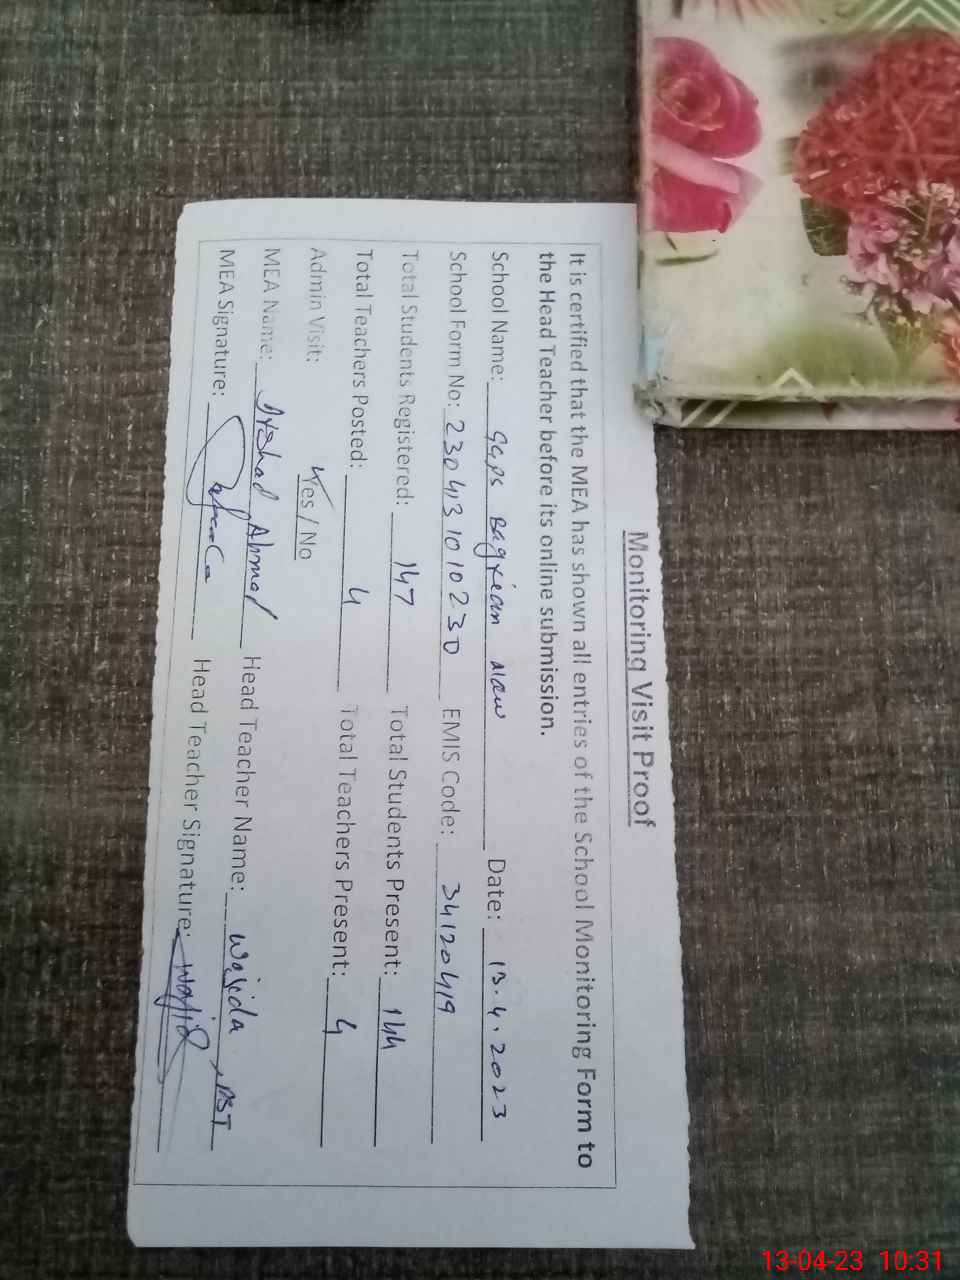 Monitoring Visit Proof
It is certified that the MEA has shown all entries of the School Monitoring Form to
the Head Teacher before its online submission.
School Name: GGPS Bagrean New Date: 13.4.2023
School Form No: 2304131010230 EMIS Code: 34120419
Total Students Registered: 147 Total Students Present: 144
Total Teachers Posted: 4 Total Teachers Present: 4
Admin Visit: Yes / No
MEA Name: Irshad Ahmad Head Teacher Name: Wajida, PST
MEA Signature: Head Teacher Signature: Wajid
13-04-23 10:31